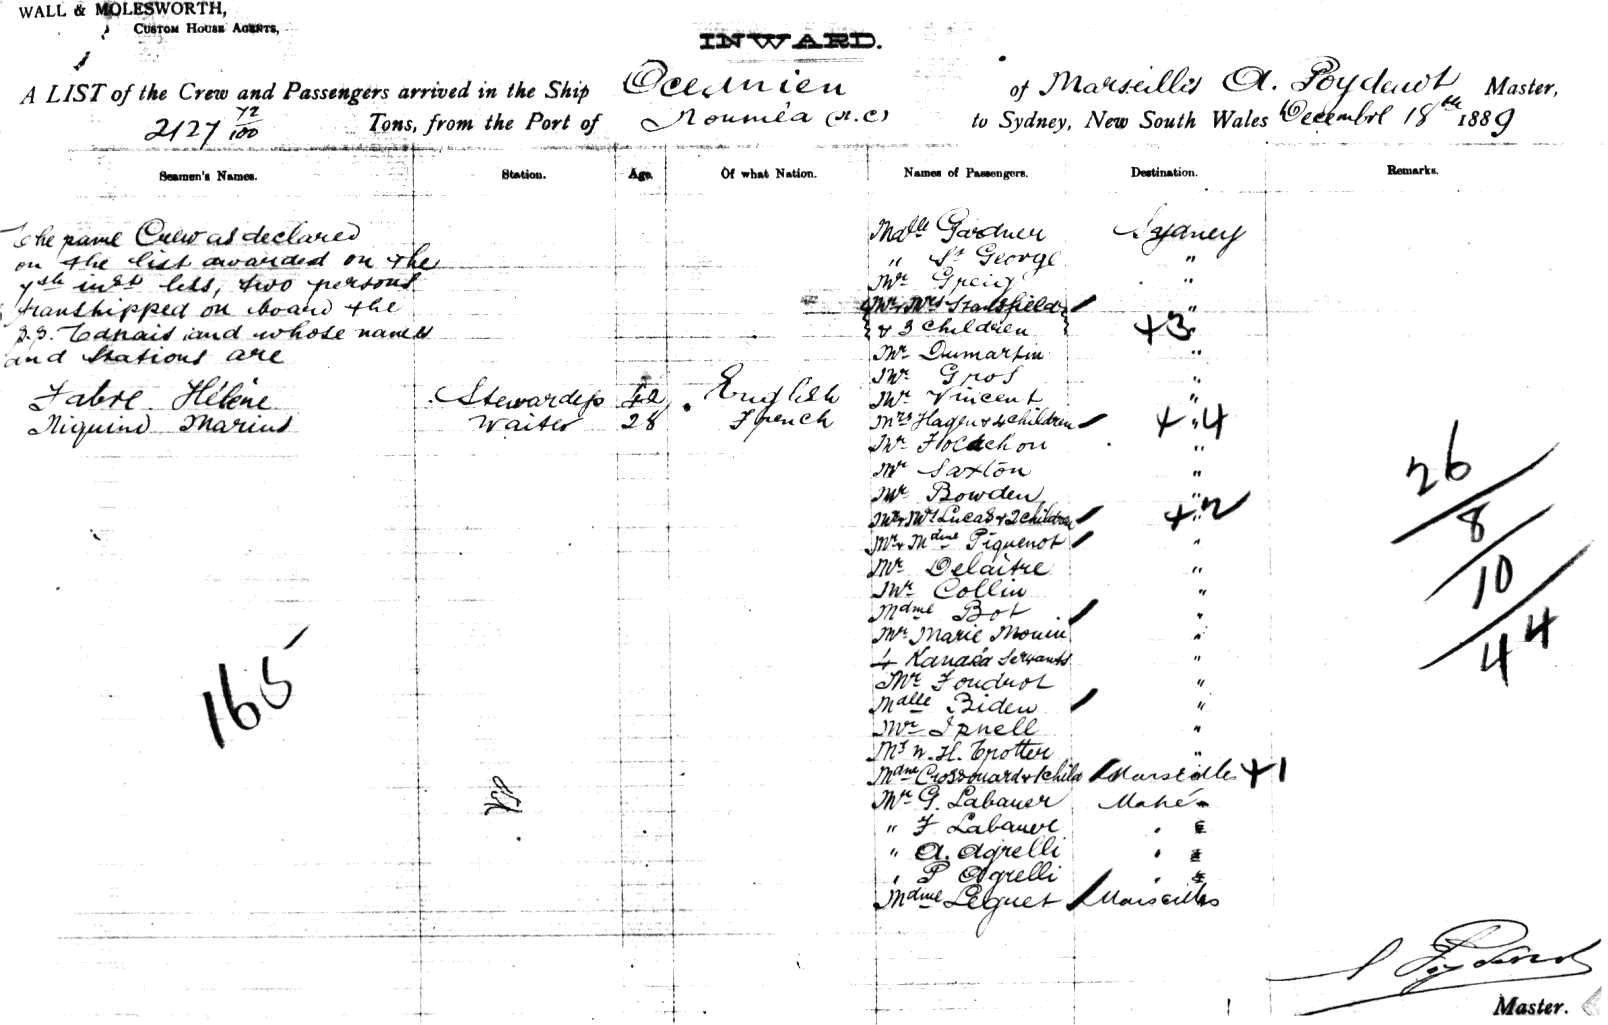 WALL & MOLESWORTH,
CUSTOM HOUSE AGENTS,
INWARD.
A LIST of the Crew and Passengers arrived in the Ship Océanien of Marseilles A. Poydenot Master,
2127 72/100 Tons, from the Port of Nouméa (N.C) to Sydney, New South Wales Decembre 18th 1889
Seamen's Names. Station. Age. Of what Nation. Names of Passengers. Destination. Remarks.
The same Crew as declared
on the list awarded on the
7th inst less, two persons
transhipped on board the
S.S. Tanais and whose names
and Stations are
Fabre Hélène Stewardess 42 English
Niquino Marius Waiter 28 French
Mdlle Gardner Sydney
" St George "
Mr Greig "
Mr & Mrs Stansfield "
& 3 children +3
Mr Dumartin "
Mr Gros "
Mr Vincent "
Mrs Hagen & 4 children + " 4
Mr Flotachon "
Mr Saxton "
Mr Bowden "
Mr & Mrs Lucas & 2 children + 2
Mr & Mdme Piquenot "
Mr Delaitre "
Mr Collin "
Mdme Bot "
Mr Marie Mouin "
4 Kanaka Servants "
Mr Foudrot "
Mdlle Biden "
Mr Ipnell "
Mr W. H. Trotter "
Mdme Crossouard & 1 child Marseilles +1
Mr G. Labauer Mahé
" F Labauer "
" A. Agrelli "
" P Agrelli "
Mdme Leguet Marseilles
26
8
10
44
165
A Poydenot
Master.